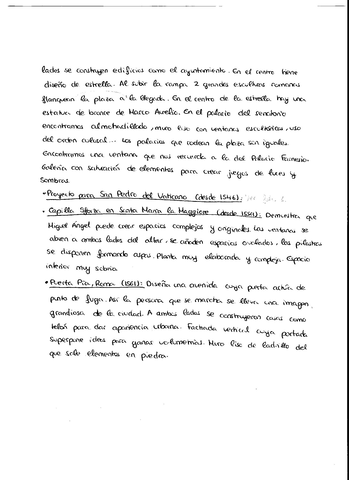 lados se construyen edificios como el ayuntamiento. En el centro tiene
diseño de estrella. Al subir la rampa 2 grandes esculturas romanas
flanquean la plaza a la llegada. En el centro de la estrella hay una
estatua de bronce de Marco Aurelio. En el palacio del senatorio
encontramos almohadillado, muro liso con ventanas, uso
del orden cultural... Los palacios que rodean la plaza son iguales.
Encontramos una ventana que nos recuerda a la del Palacio Farnesio.
Galería con salvación de elementos para crear juegos de luces y
sombras.
• Proyecto para San Pedro del Vaticano (desde 1546):
• Capilla Sforza en Santa María la Maggiore (desde 1561): Demuestra que
Miguel Ángel puede crear espacios complejos y originales. Las ventanas se
abren a ambos lados del altar. Se añaden espacios ovalados, las pilastras
se disponen formando aspas. Planta muy elaborada y compleja. Espacio
interior muy sobrio.
• Puerta Pía, Roma (1561): Diseña una avenida cuya punta actúa de
punto de fuga. Así la persona que se marcha se lleva una imagen
grandiosa de la ciudad. A ambos lados se construyeron casas como
telón para dar apariencia urbana. Fachada vertical cuya portada
superpone ideas para ganar volumetrías. Muro liso de ladrillo del
que sale elementos en piedra.